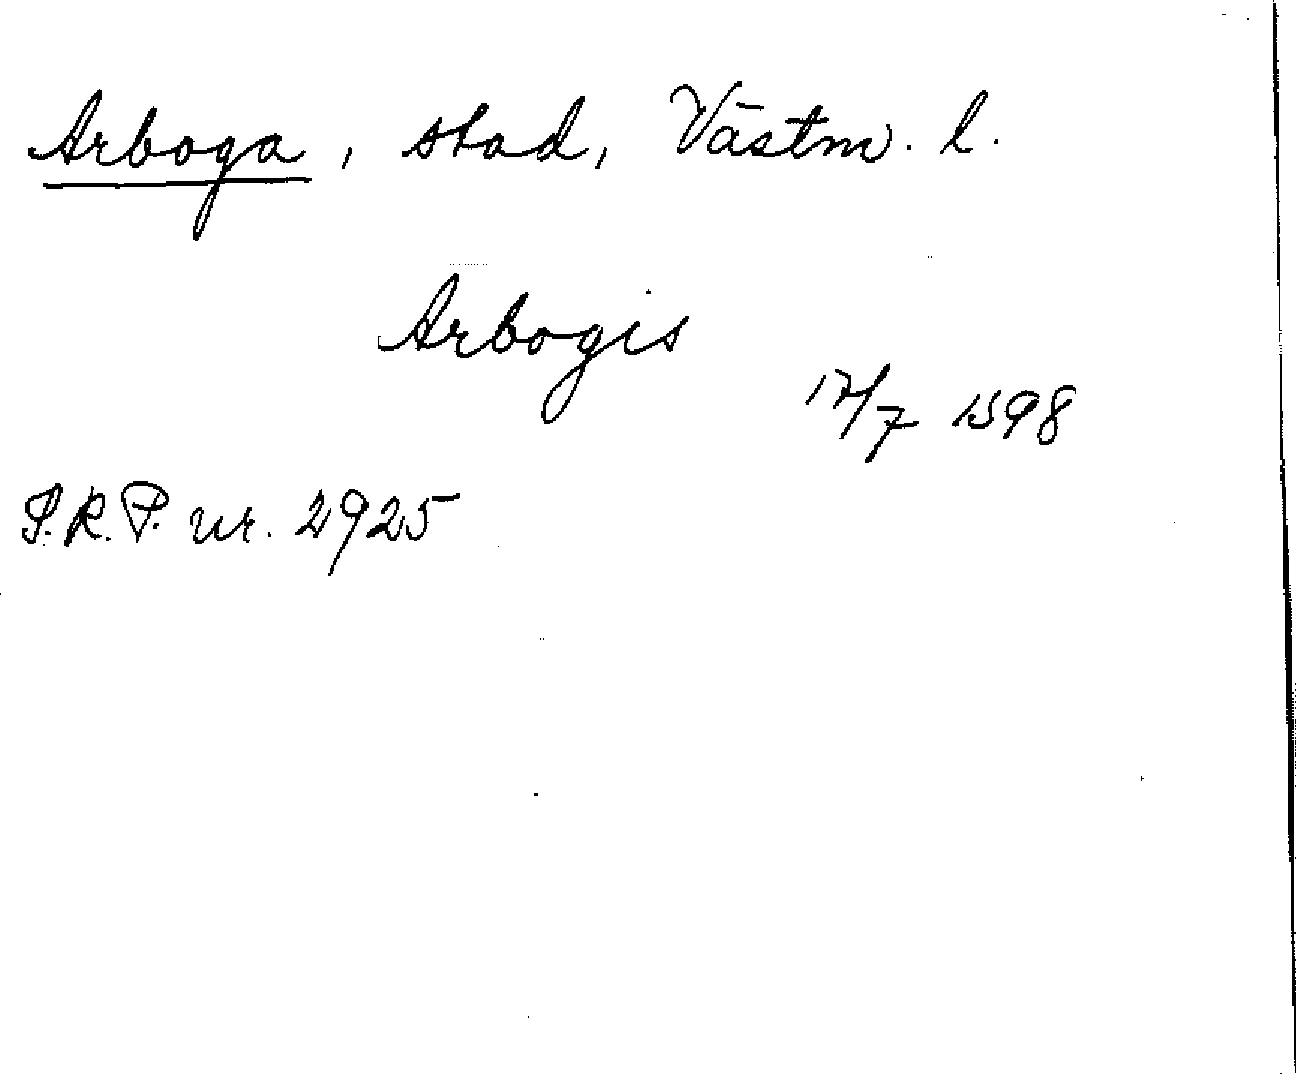 Arboga, stad, Västm. l.
Arbogis
17/7 1398
S.R.P. nr. 2925